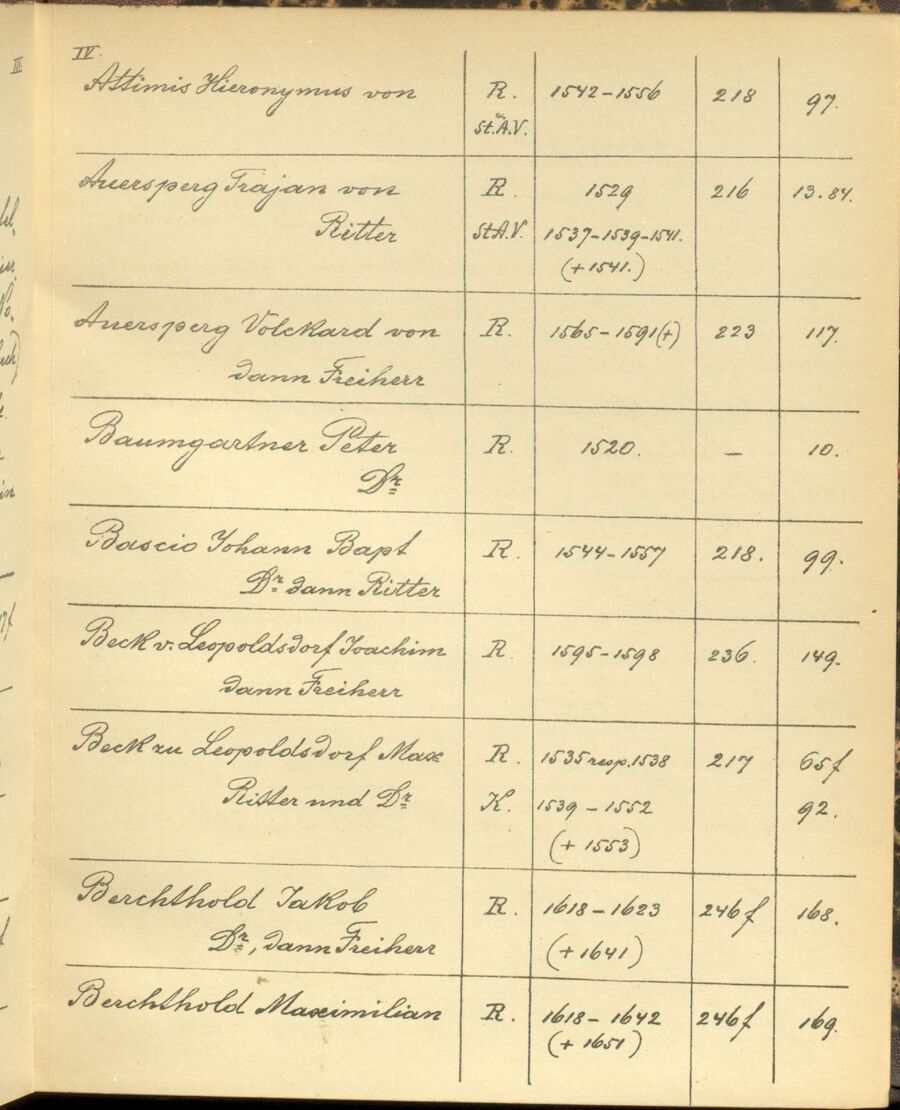 III
IV.
Attimis Hieronymus von R. 1542-1556 218 97.
St.A.V.
Auersperg Trajan von R. 1529 216 13.84.
Ritter St.A.V. 1537-1539-1541.
(+1541.)
Auersperg Volckard von R. 1565-1591(+) 223 117.
dann Freiherr
Baumgartner Peter R. 1520. – 10.
Dr
Bascio Johann Bapt R. 1544-1557 218. 99.
Dr dann Ritter
Beck v. Leopoldsdorf Joachim R. 1595-1598 236. 149.
dann Freiherr
Beck zu Leopoldsdorf Max R. 1535 resp. 1538 217 65f
Ritter und Dr K. 1539-1552 92.
(+ 1553)
Berchthold Jakob R. 1618-1623 246f 168.
Dr, dann Freiherr (+1641)
Berchthold Maximilian R. 1618-1642 246f 169.
(+ 1651)